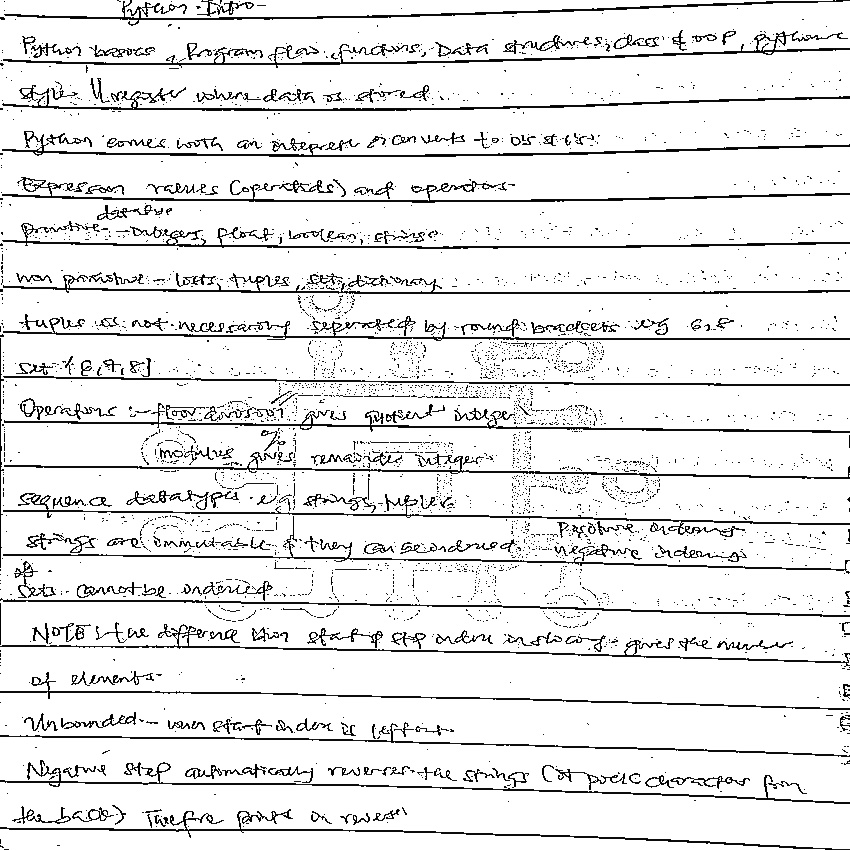 Python Intro
Python basics, Program flow, functions, Data structures, class & OOP, Pythonic
style register where data is stored.
Python comes with an & converts to
Expression values (operands) and operators
datatype
primitive - Integers, float, boolean, strings
non primitive - lists, tuples, set, dictionary
tuples is not necessarily seperated by round brackets eg 6,8
set {6,7,8]
Operators :- floor division // gives quotient integer
modulus % gives remainder integer
sequence datatypes e.g strings, tuples
strings are immutable & they can be indexed positive indexing
negative indexing
Sets cannot be indexed
NOTE: the difference btwn start & stop index in slicing - gives the number
of elements
Unbounded - when start index is left out.
Negative step automatically reverses the strings ( characters from
the back) Therefore prints in reverse